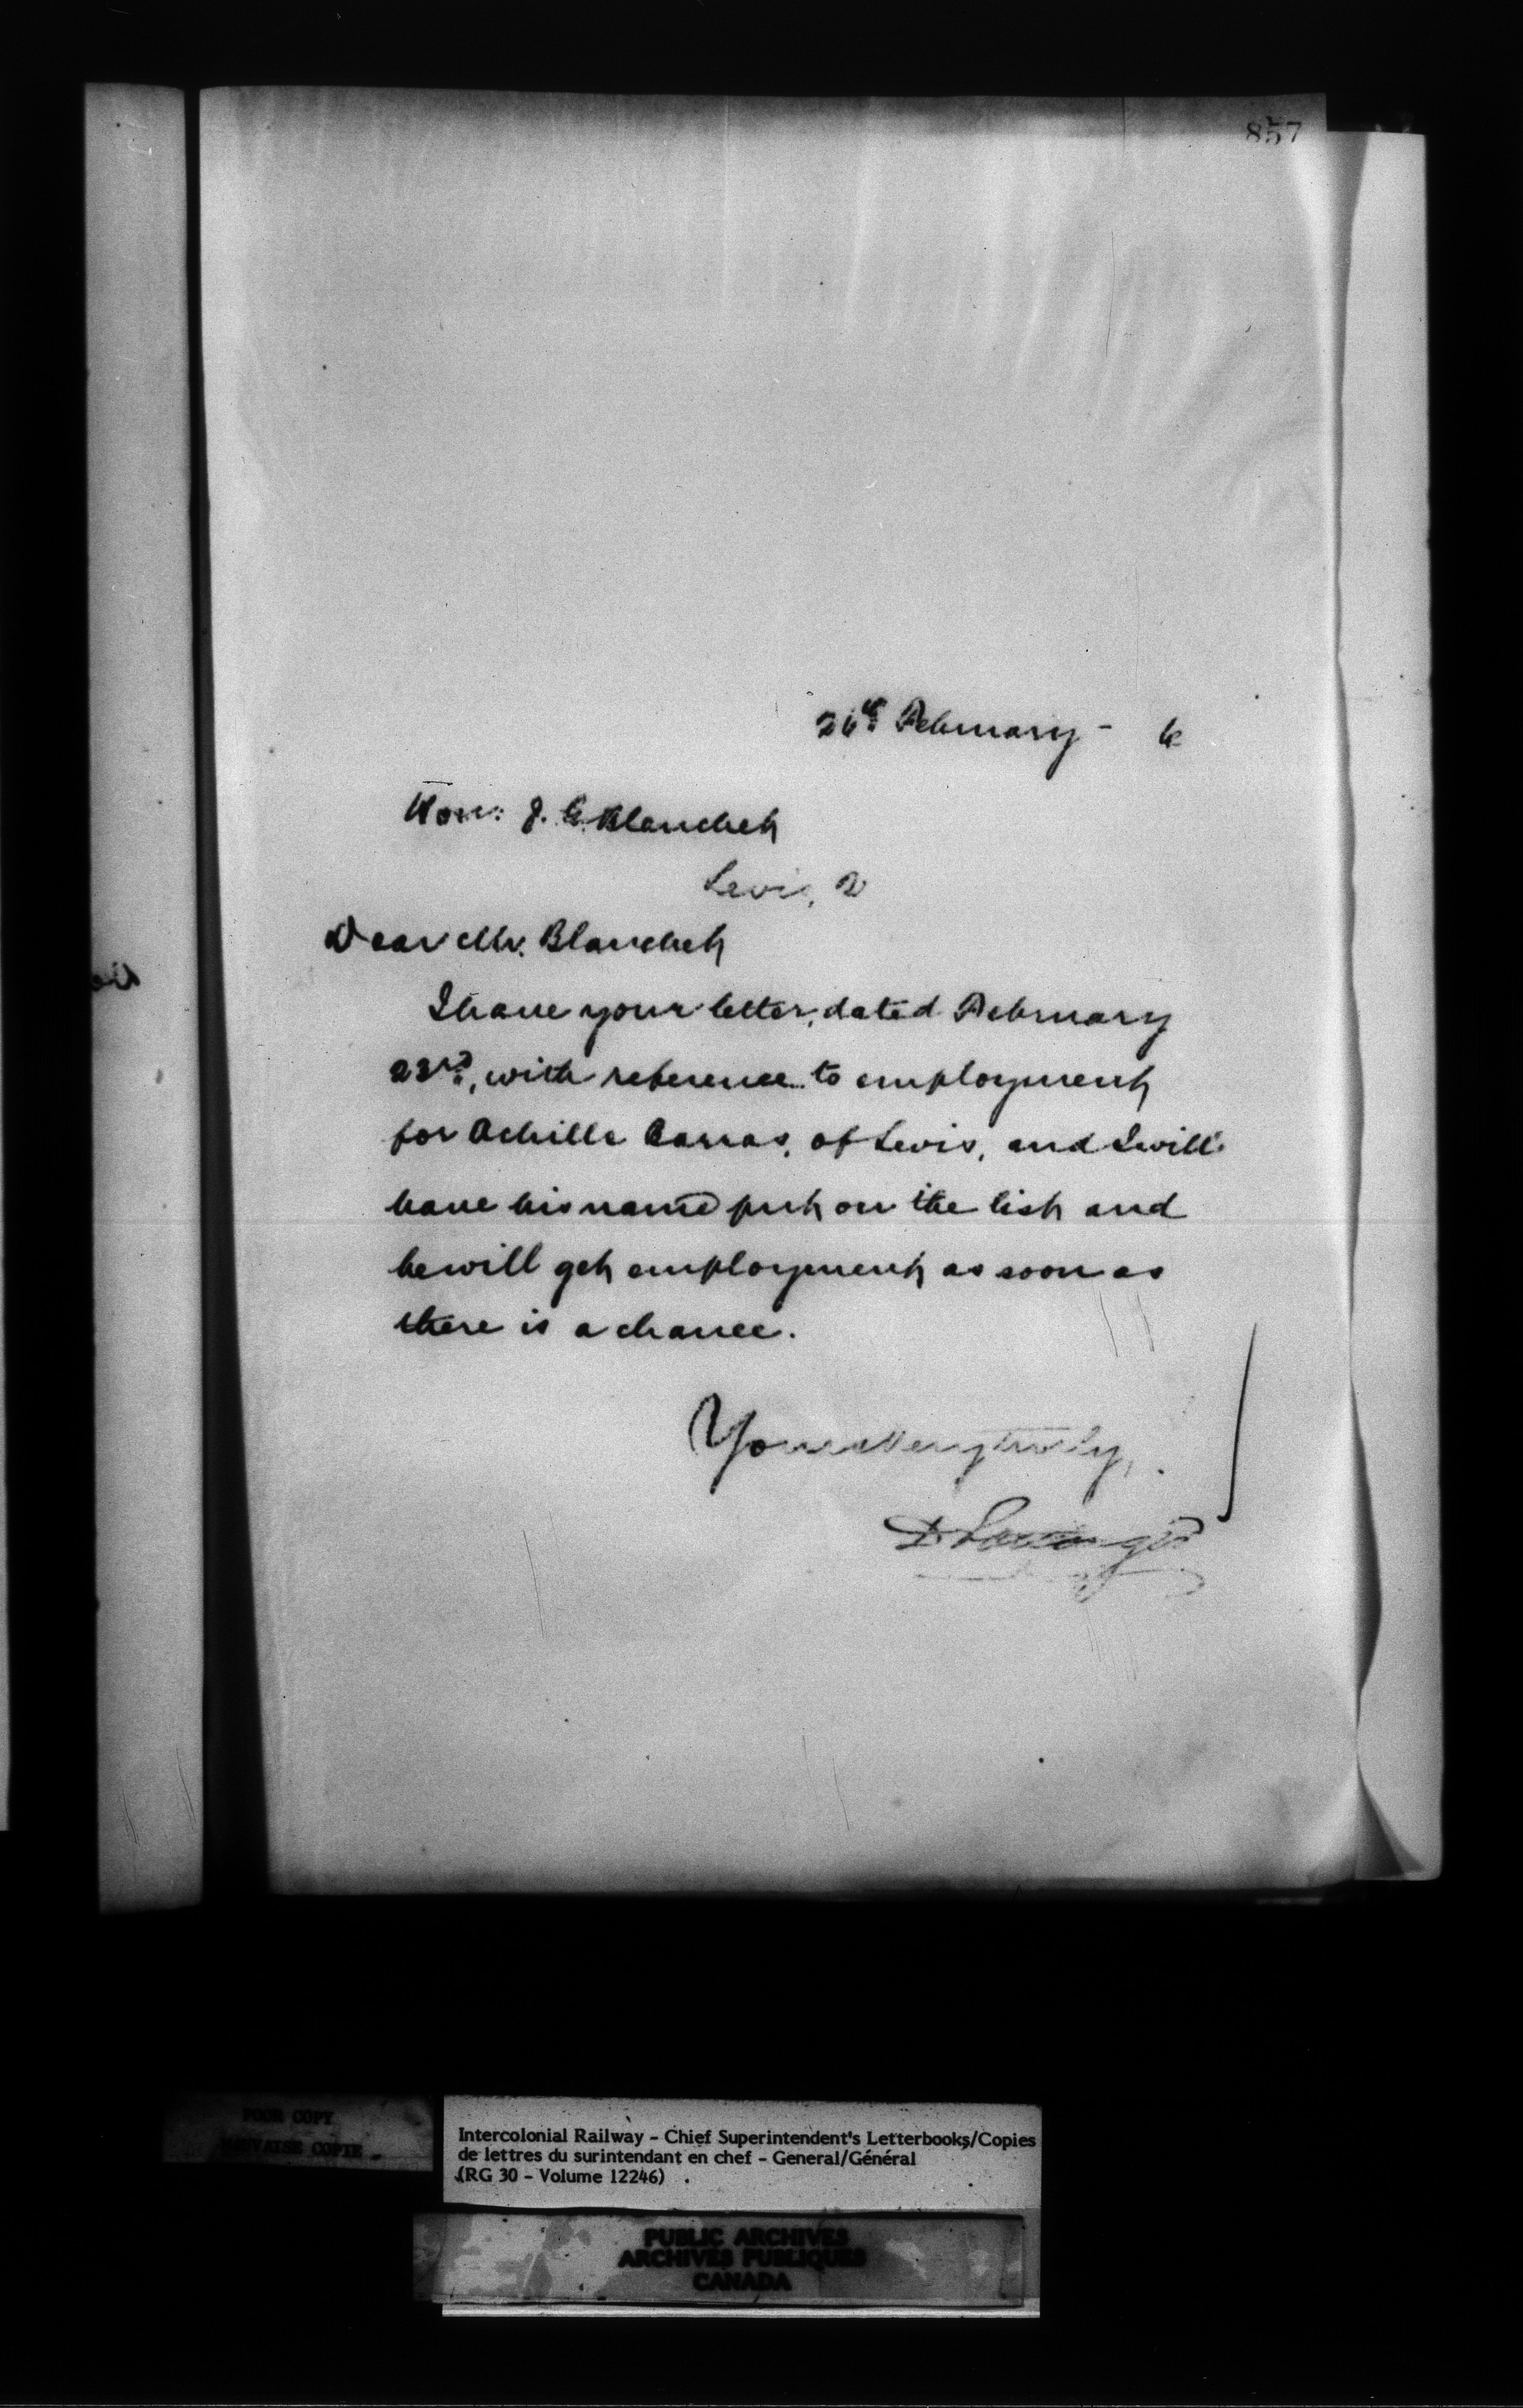 857
26th February - 6
Hon: J. G. Blanchet
Levis, Q
Dear Mr. Blanchet
I have your letter, dated February
23rd, with reference to employment
for Achille Carras, of Levis, and I will
have his name put on the list and
he will get employment as soon as
there is a chance.
Yours very truly,
D Pottinger
POOR COPY
MAUVAISE COPIE
Intercolonial Railway - Chief Superintendent's Letterbooks/Copies
de lettres du surintendant en chef - General/Général
(RG 30 - Volume 12246)
PUBLIC ARCHIVES
ARCHIVES PUBLIQUES
CANADA